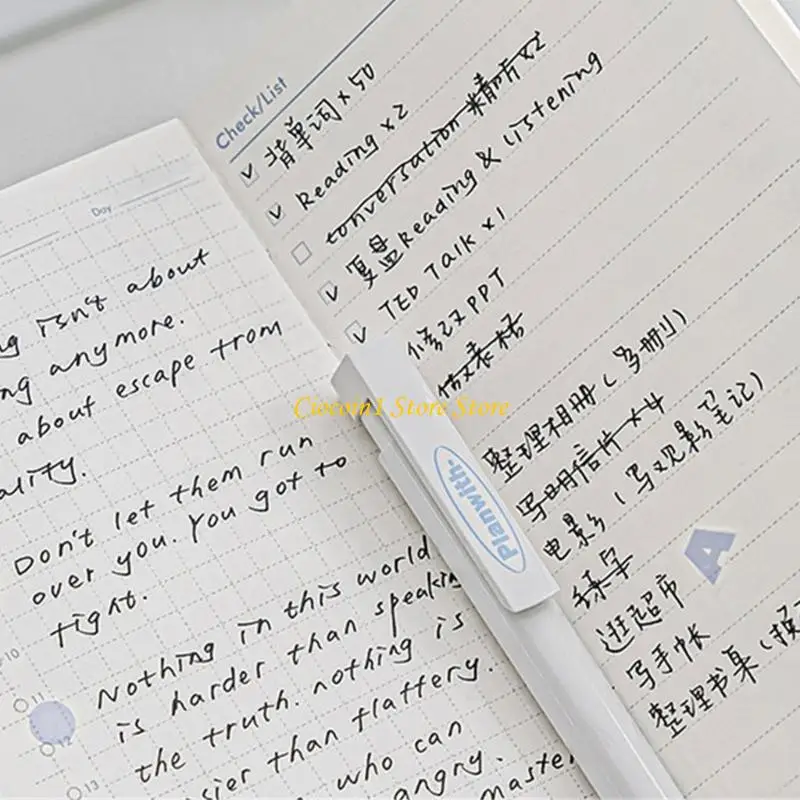 Day
isn't about
anymore.
about escape from
ality.
Don't let them run
over you. You got to
fight.
Nothing in this world
is harder than speaking
the truth. nothing is
sier than flattery.
who can
angry.
master
10
11
12
13
Check/List
背单词×50
Reading ×2
conversation 精听×2
复盘Reading & Listening
TED Talk ×1
修改PPT
做表格
整理相册(多册)
写明信片×4
电影(写观影笔记)
练字
逛超市
写手帐
整理书桌(
A
Planwith
Ciocoin1 Store Store